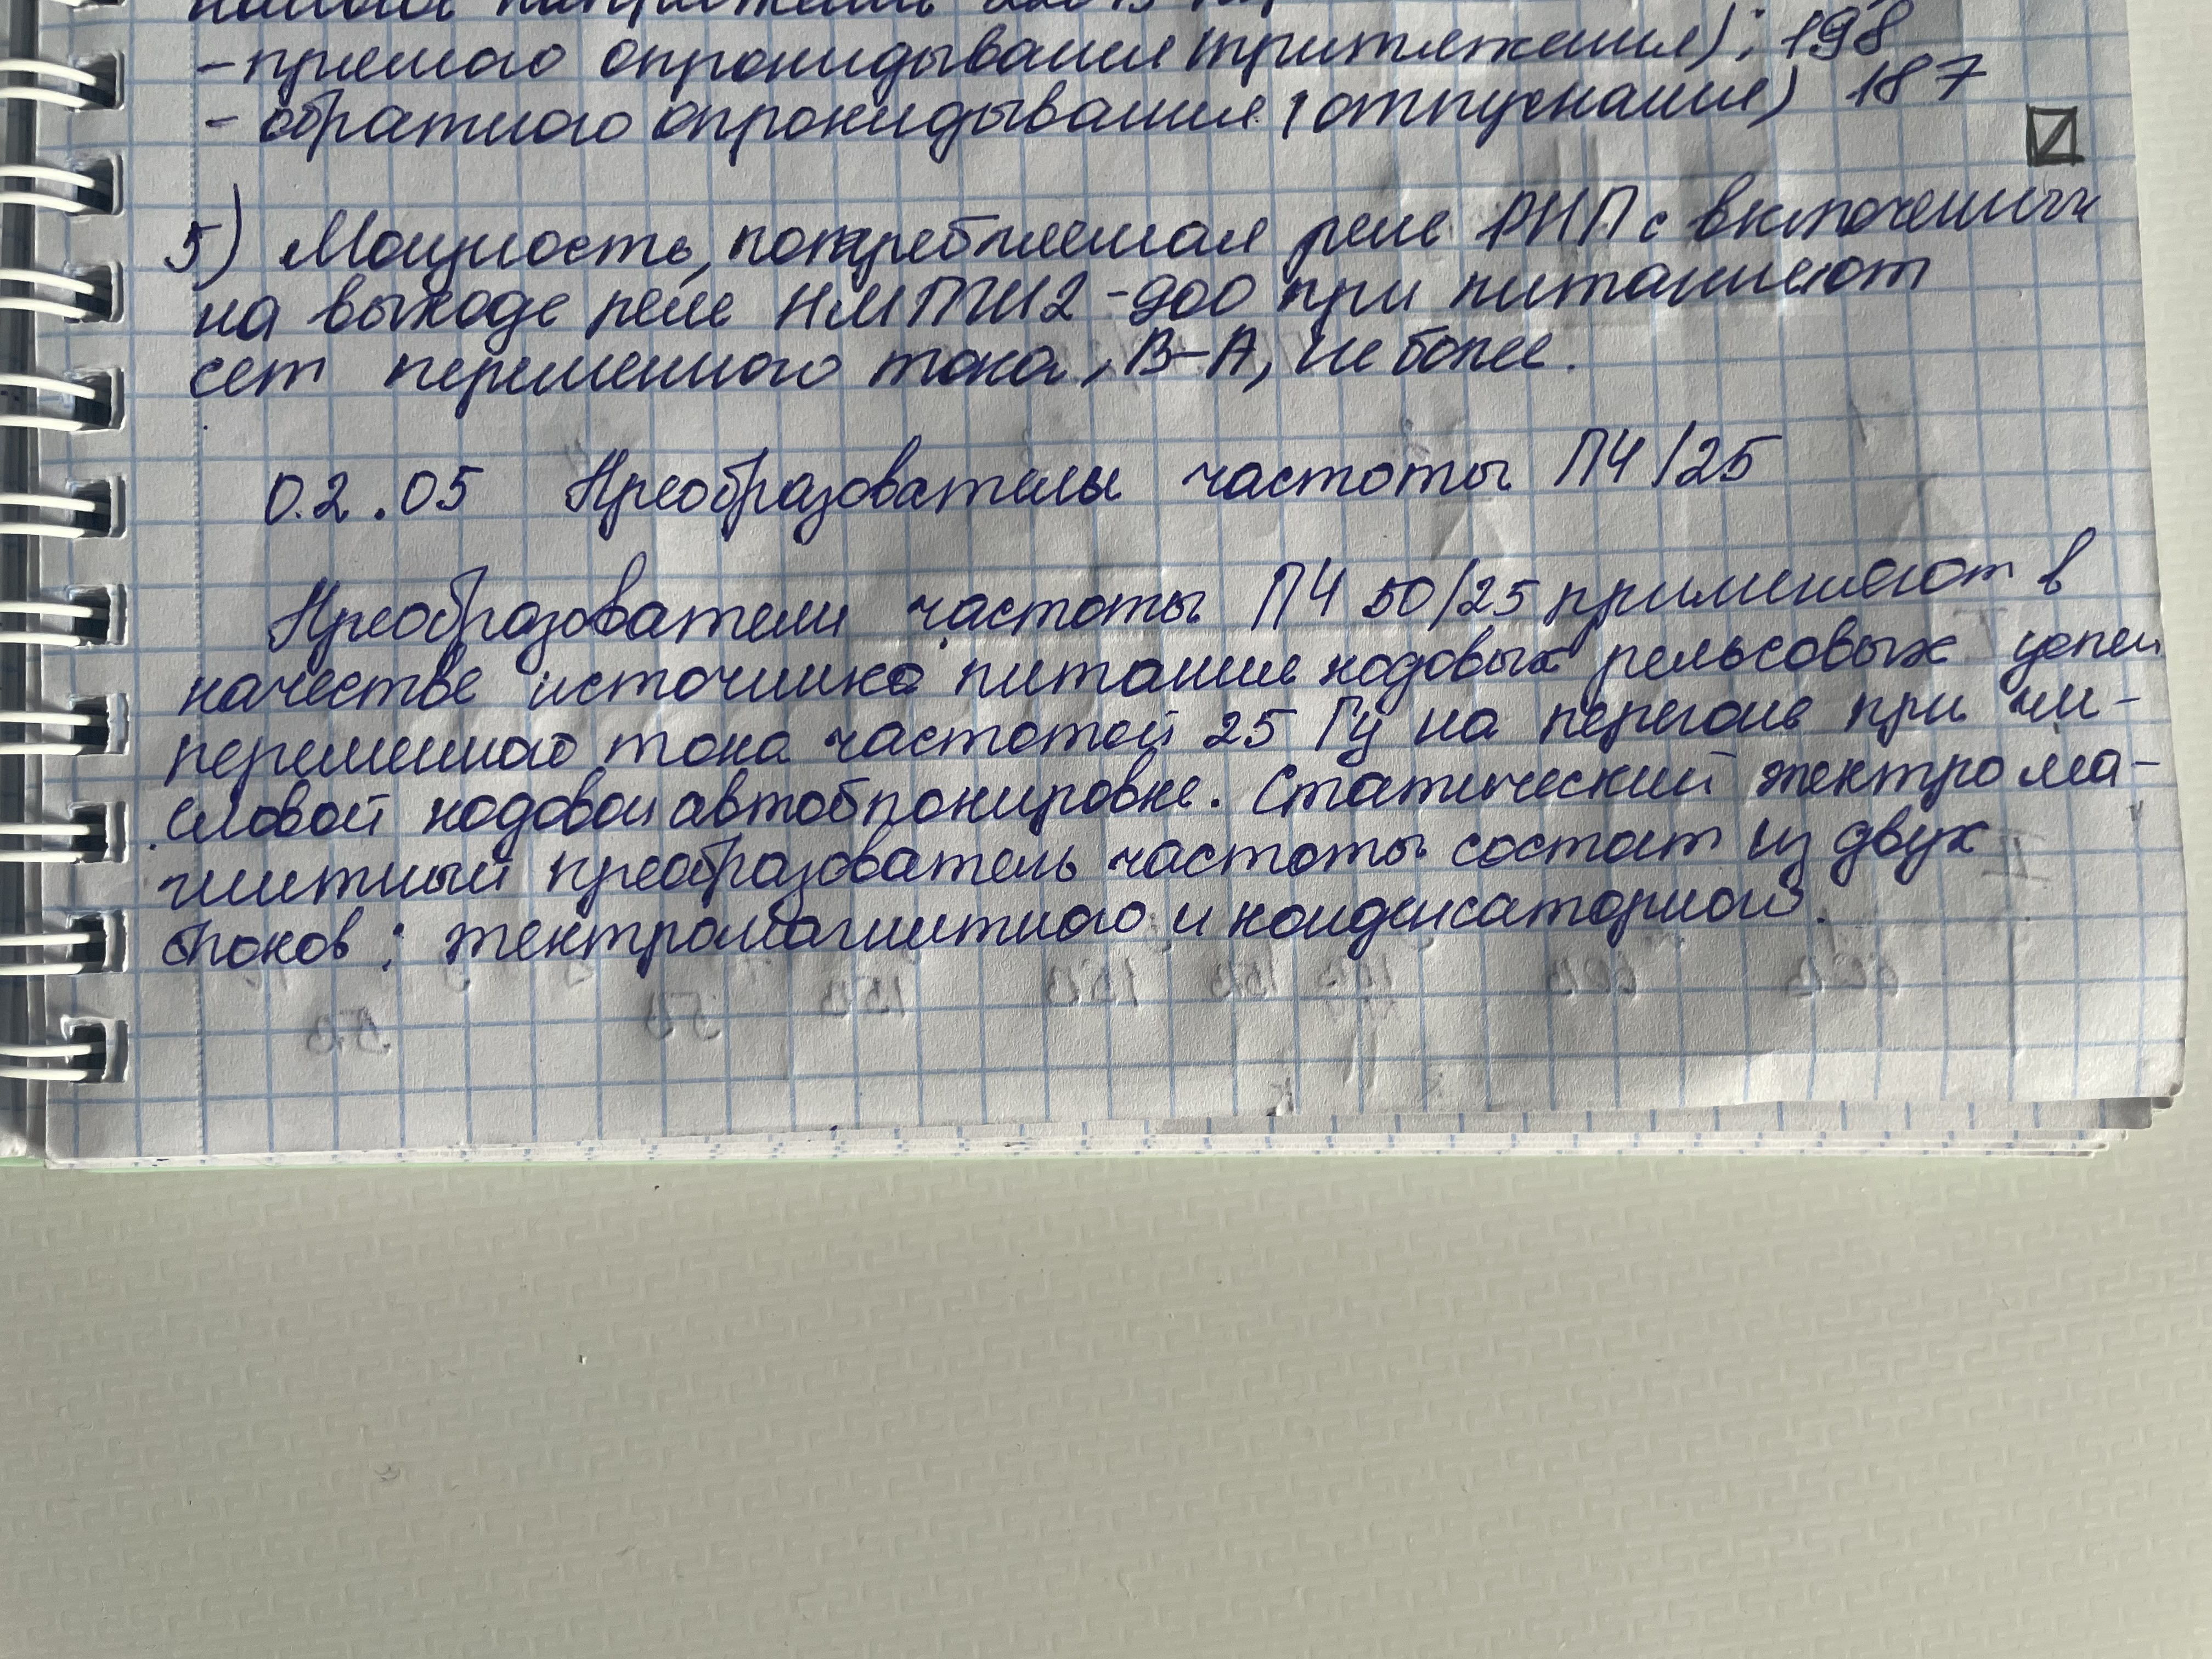 - прямого опрокидывания (притяжения); 198
- обратного опрокидывания (отпускание) 187
5) Мощность, потребляемая реле РНП с включенным
на выходе реле НМПШ2-900 при питании от
сет переменного тока, В-А, не более.
02.05 Преобразователы частоты ПЧ/25
Преобразователи частоты ПЧ 50/25 применяют в
качестве источника питания кодовых рельсовых цепей
переменного тока частотой 25 Гц на перегоне при чи-
словой кодовой автоблокировке. Статический электрома-
гнитный преобразователь частоты состаит из двух
блоков: электромагнитного и конденсаторного.